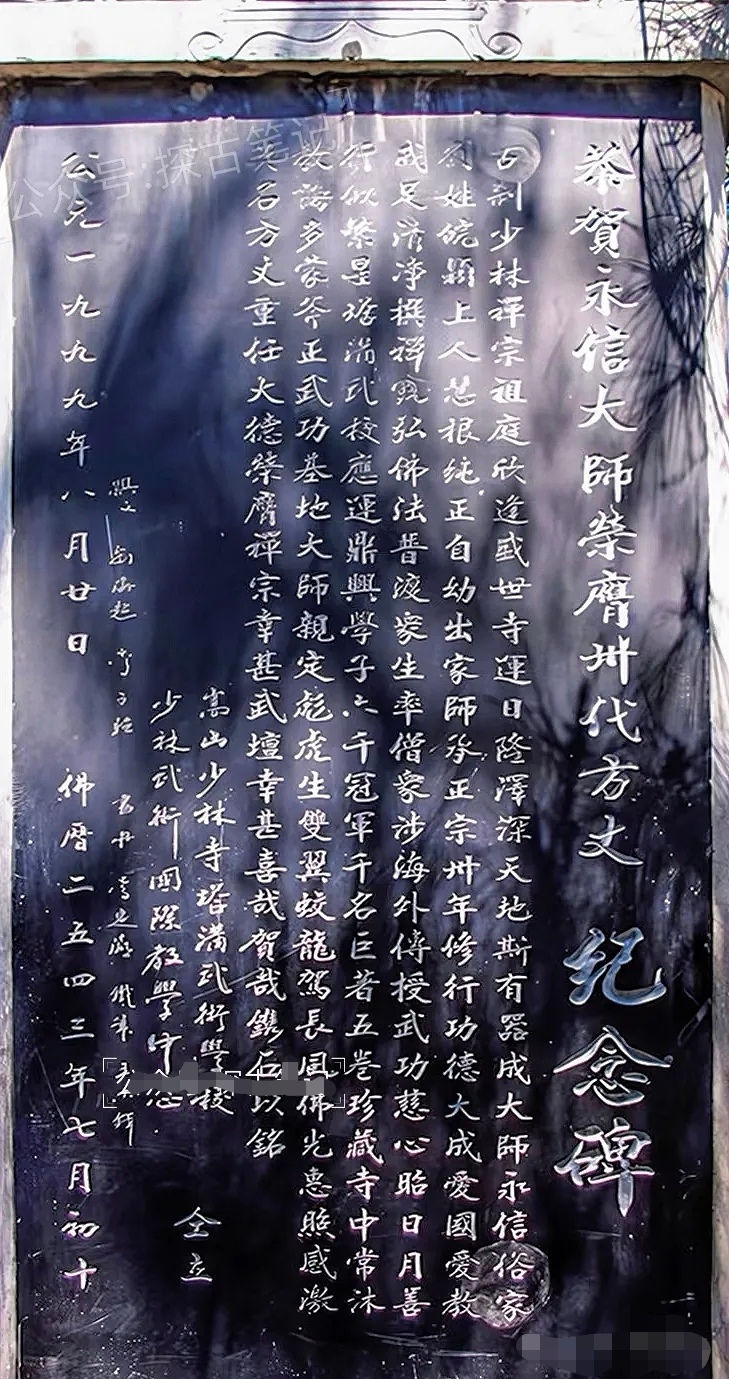 恭賀永信大師榮膺卅代方丈 纪念碑
古刹少林禪宗祖庭欣逢盛世寺運日隆澤深天地斯有器成大師永信俗家
劉姓皖潁上人慧根純正自幼出家師承正宗卅年修行功德大成愛國愛教
戒足清净撰禪寳弘佛法普渡衆生率僧衆涉海外傳授武功慈心昭日月善
行似繁星塔溝武校應運鼎興學子六千冠軍千名巨著五卷珍藏寺中常沐
教誨多蒙斧正武功基地大師親定彪虎生雙翼蛟龍駕長風佛光惠照感激
英名方丈重任大德榮膺禪宗幸甚武壇幸甚喜哉賀哉鐫石以銘
嵩山少林寺塔溝武術學校
少林武術國際教學中心
仝立
撰文
公元一九九九年八月廿日 佛曆二五四三年七月初十
公众号:探古笔记